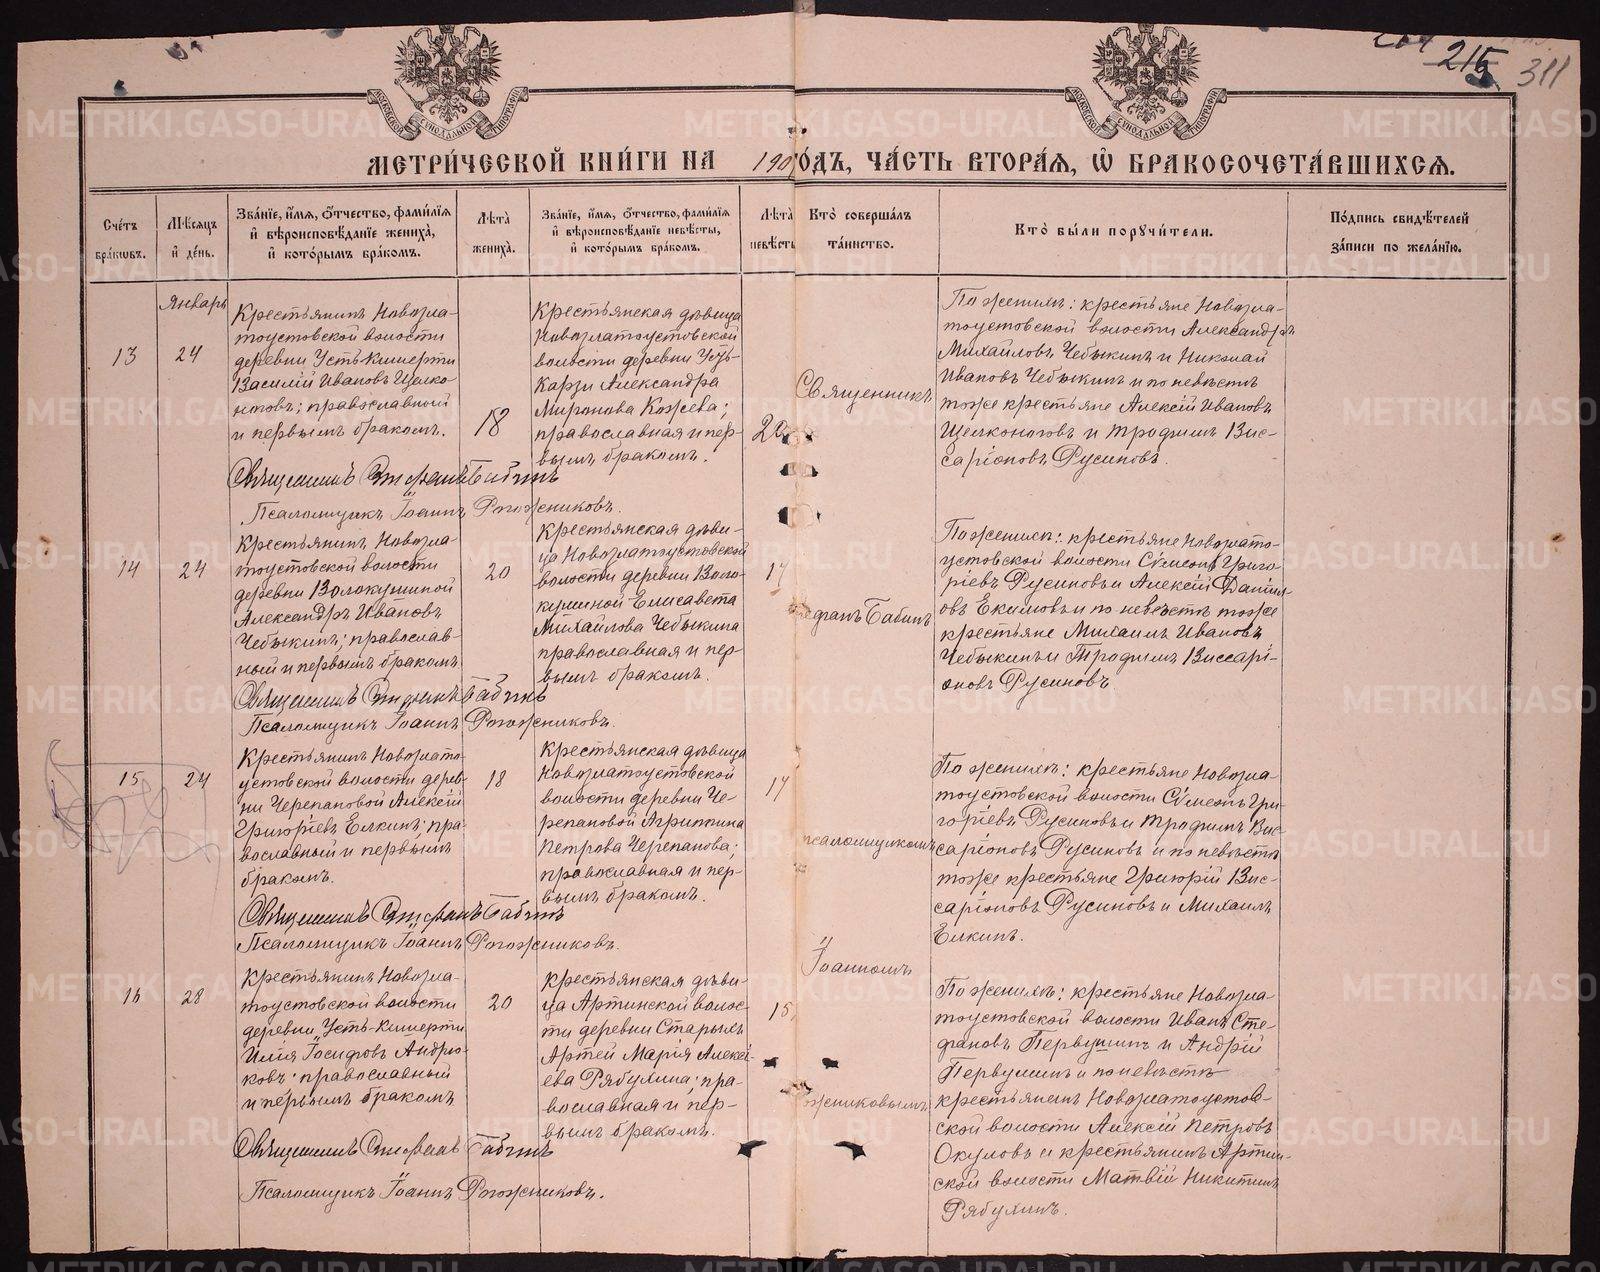 215
311
МЕТРИ́ЧЕСКОЙ КНИ́ГИ НА 190 ГО́ДЪ, ЧА́СТЬ ВТОРА́Я, Ѡ БРАКОСОЧЕТА́ВШИХСЯ.
Сче́тъ бра́ковъ.
Мѣ́сяцъ и де́нь.
Зва́нїе, и́мя, о́тчество, фами́лїя и вѣроисповѣ́данїе жениха̀, и кото́рымъ бра́комъ.
Лѣ́та жениха̀.
Зва́нїе, и́мя, о́тчество, фами́лїя и вѣроисповѣ́данїе невѣ́сты, и кото́рымъ бра́комъ.
Лѣ́та невѣ́сты
Кто̀ соверша́лъ та́инство.
Кто̀ бы́ли поручи́тели.
По́дпись свидѣ́телей за́писи по жела́нїю.
Январь
13
24
Крестьянинъ Новозла-
тоустовской волости
деревни Усть-Кишерти
Василій Ивановъ Щелко-
ноговъ; православный
и первымъ бракомъ.
18
Крестьянская дѣвица
Новозлатоустовской
волости деревни Усть-
Карзи Александра
Миронова Кожева;
православная и пер-
вымъ бракомъ.
20
Священникъ
По женихѣ: крестьяне Новозла-
тоустовской волости Александръ
Михайловъ Чебыкинъ и Николай
Ивановъ Чебыкинъ и по невѣстѣ
тоже крестьяне Алексій Ивановъ
Щелконоговъ и Трофимъ Вис-
саріоновъ Русиновъ.
Священникъ Стефанъ Бабинъ
Псаломщикъ Іоаннъ Рогожниковъ.
14
24
Крестьянинъ Новозла-
тоустовской волости
деревни Волокушиной
Александръ Ивановъ
Чебыкинъ; православ-
ный и первымъ бракомъ
20
Крестьянская дѣви-
ца Новозлатоустовской
волости деревни Воло-
кушиной Елисавета
Михайлова Чебыкина
православная и пер-
вымъ бракомъ.
17
Стефанъ Бабинъ
По женихѣ: крестьяне Новозлато-
устовской волости Сѵмеонъ Григо-
ріевъ Русиновъ и Алексій Даніил-
овъ Екимовъ и по невѣстѣ тоже
крестьяне Михаилъ Ивановъ
Чебыкинъ и Трофимъ Виссарі-
оновъ Русиновъ.
Священникъ Стефанъ Бабинъ
Псаломщикъ Іоаннъ Рогожниковъ.
15
24
Крестьянинъ Новозлато-
устовской волости дерев-
ни Черепановой Алексій
Григоріевъ Елкинъ; пра-
вославный и первымъ
бракомъ.
18
Крестьянская дѣвица
Новозлатоустовской
волости деревни Че-
репановой Агриппина
Петрова Черепанова;
православная и пер-
вымъ бракомъ.
17
псаломщикомъ
По женихѣ: крестьяне Новозла-
тоустовской волости Сѵмеонъ Гри-
горіевъ Русиновъ и Трофимъ Вис-
саріоновъ Русиновъ и по невѣстѣ
тоже крестьяне Григорій Вис-
саріоновъ Русиновъ и Михаилъ
Елкинъ.
Священникъ Стефанъ Бабинъ
Псаломщикъ Іоаннъ Рогожниковъ.
Іоанномъ
16
28
Крестьянинъ Новозла-
тоустовской волости
деревни Усть-Кишерти
Илія Іосифовъ Андрю-
ковъ; православный
и первымъ бракомъ
20
Крестьянская дѣви-
ца Артинской волос-
ти деревни Старыхъ
Артей Марія Алексі-
ева Рябухина; пра-
вославная и пер-
вымъ бракомъ.
15
жниковымъ
По женихѣ: крестьяне Новозла-
тоустовской волости Иванъ Сте-
фановъ Первушинъ и Андрій
Первушинъ и по невѣстѣ
крестьянинъ Новозлатоустов-
ской волости Алексій Петровъ
Окуловъ и крестьянинъ Артин-
ской волости Матвій Никитинъ
Рябухинъ.
Священникъ Стефанъ Бабинъ
Псаломщикъ Іоаннъ Рогожниковъ.
METRIKI.GASO-URAL.RU